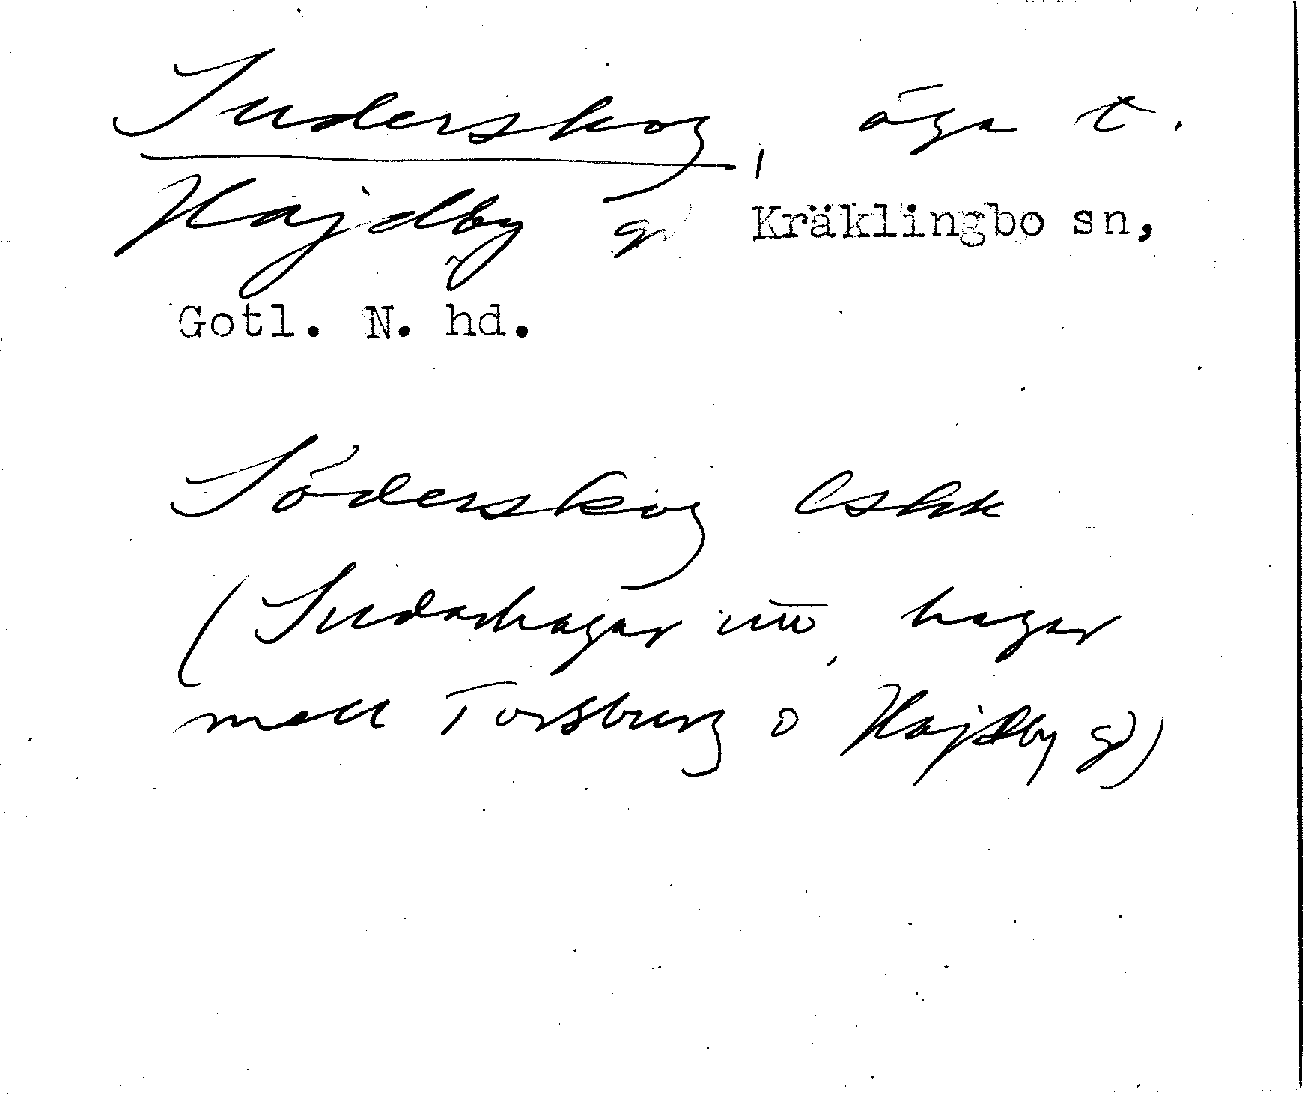 Suderskog, äga t.
Hajdby g Kräklingbo sn,
Gotl. N. hd.
Söderskog Lskk
(Sudarhagar hagar
mell Torsburg o Hajdby g)